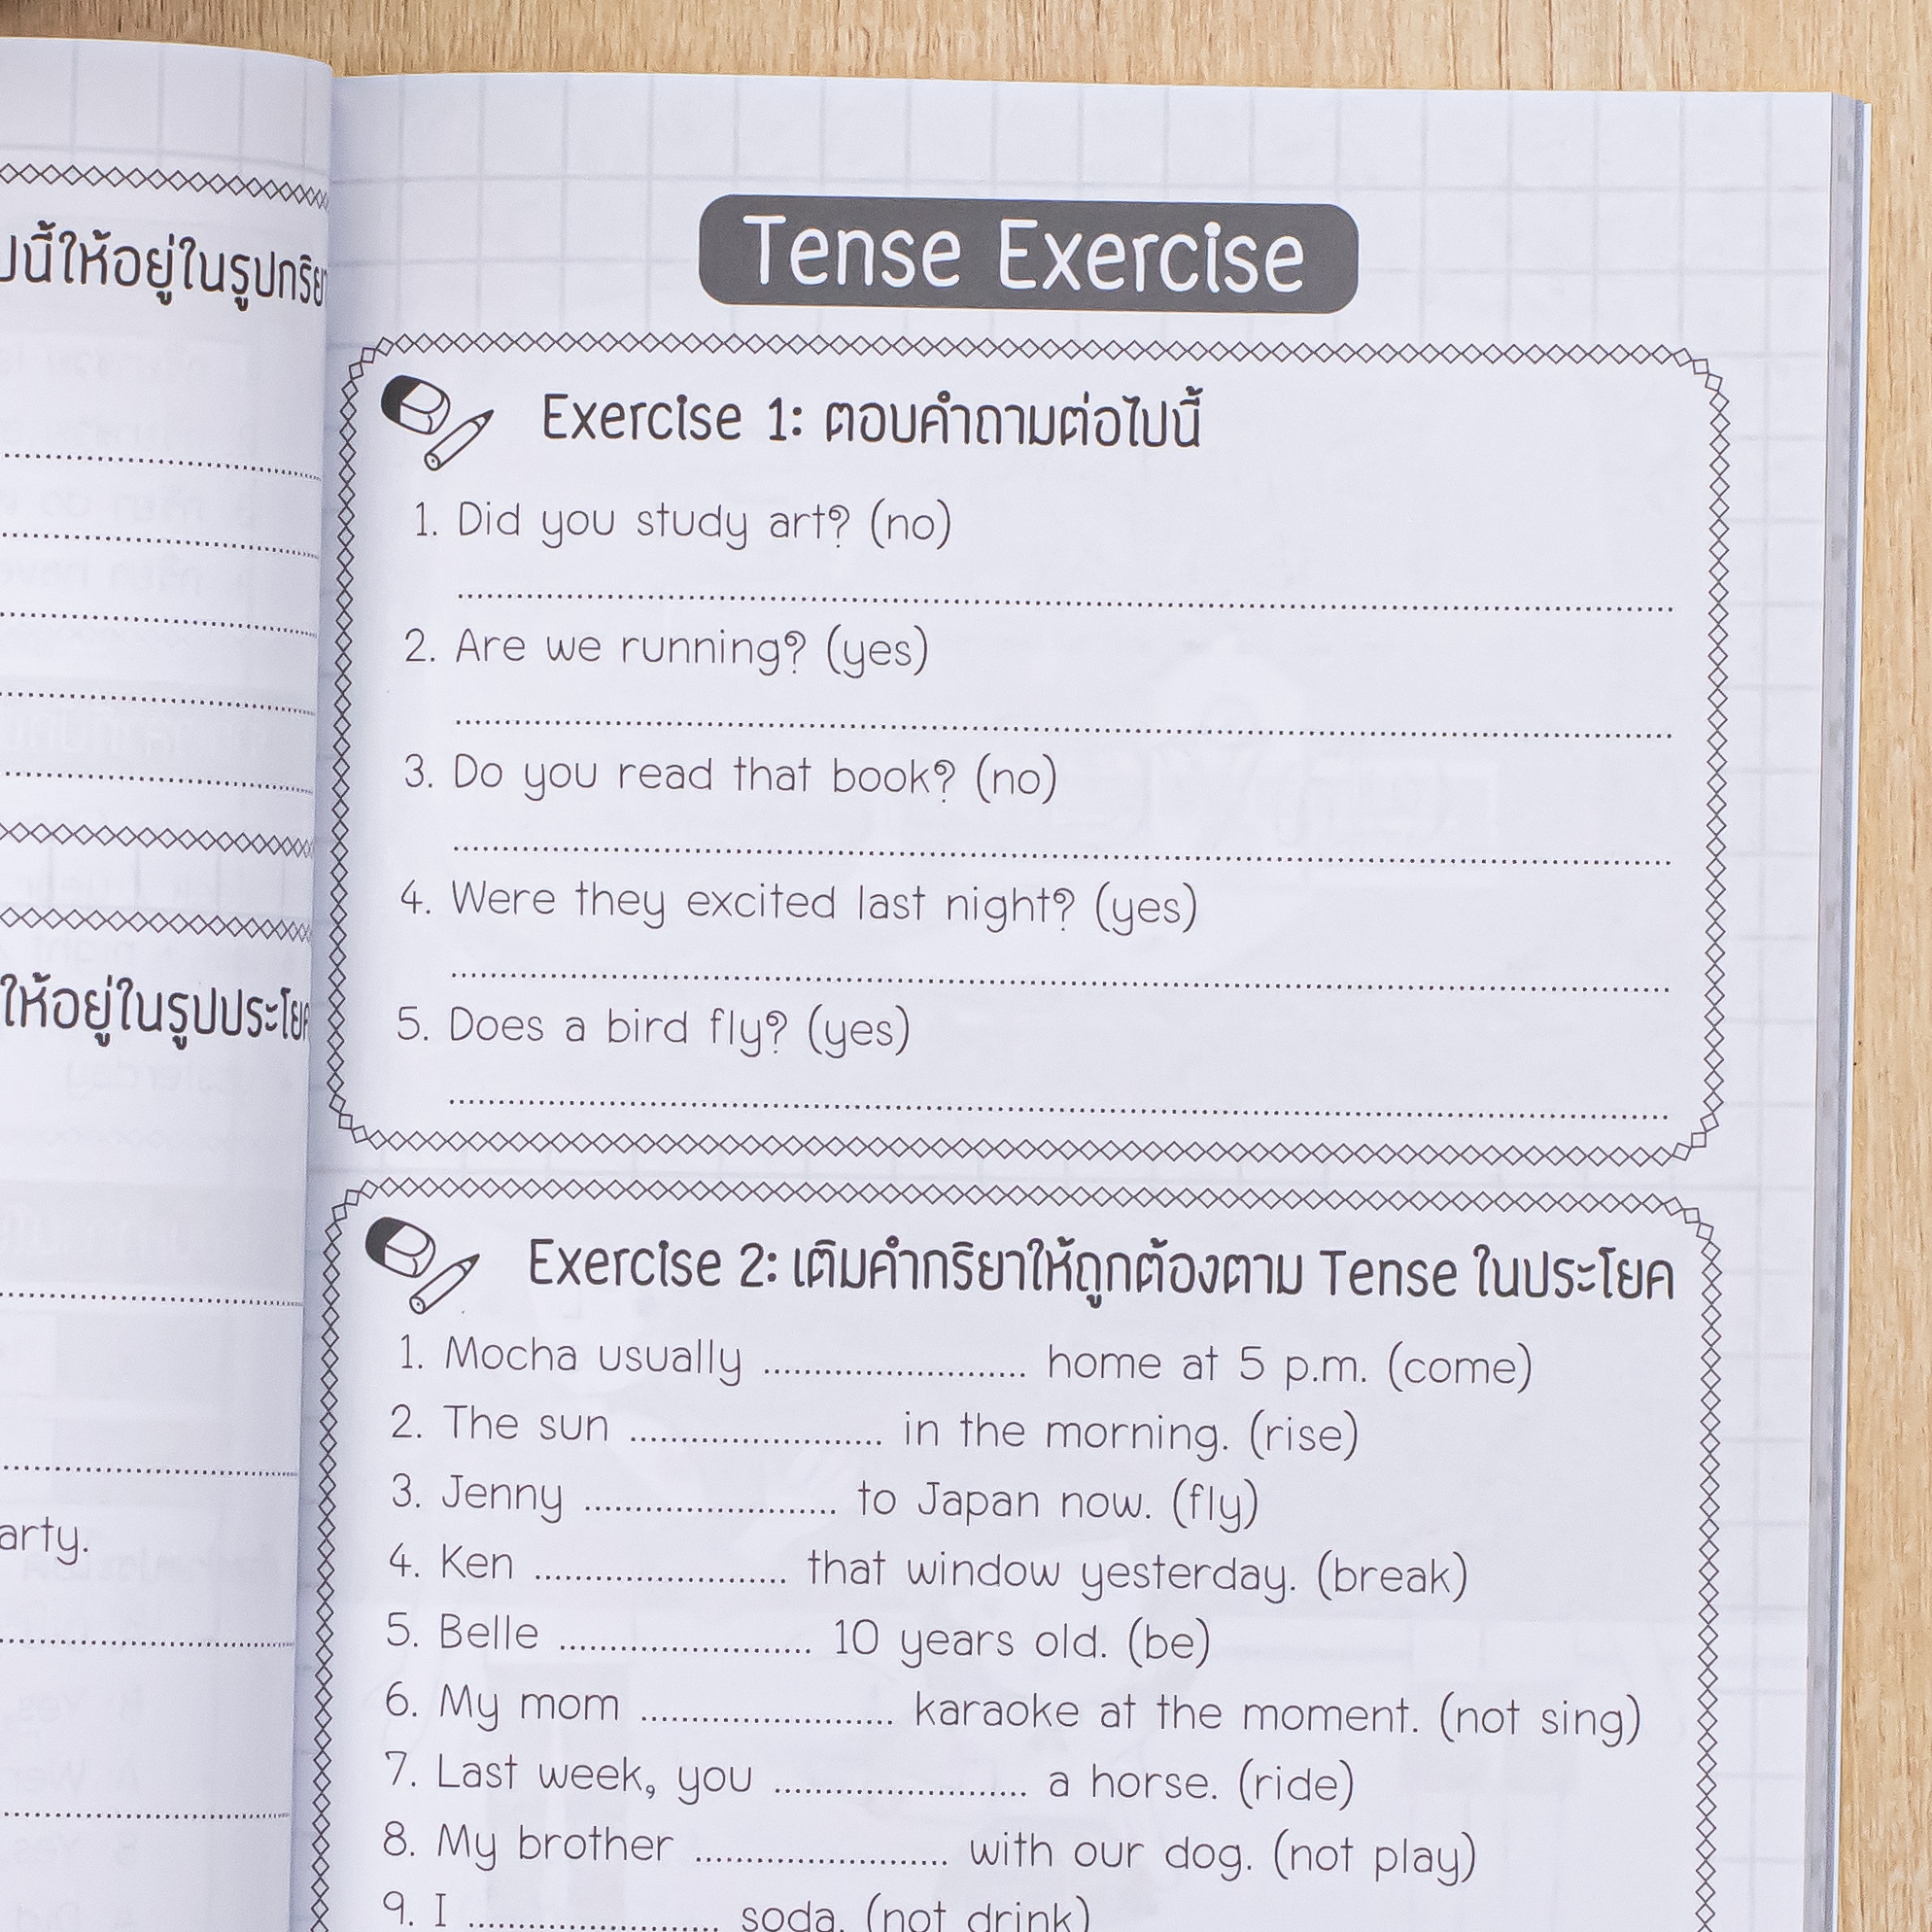 ปนี้ให้อยู่ในรูปกริยา
ให้อยู่ในรูปประโยค
arty.
Tense Exercise
Exercise 1: ตอบคำถามต่อไปนี้
1. Did you study art? (no)
2. Are we running? (yes)
3. Do you read that book? (no)
4. Were they excited last night? (yes)
5. Does a bird fly? (yes)
Exercise 2: เติมคำกริยาให้ถูกต้องตาม Tense ในประโยค
1. Mocha usually .......................... home at 5 p.m. (come)
2. The sun ......................... in the morning. (rise)
3. Jenny ......................... to Japan now. (fly)
4. Ken ......................... that window yesterday. (break)
5. Belle ......................... 10 years old. (be)
6. My mom ......................... karaoke at the moment. (not sing)
7. Last week, you ......................... a horse. (ride)
8. My brother ......................... with our dog. (not play)
9. I ......................... soda. (not drink)